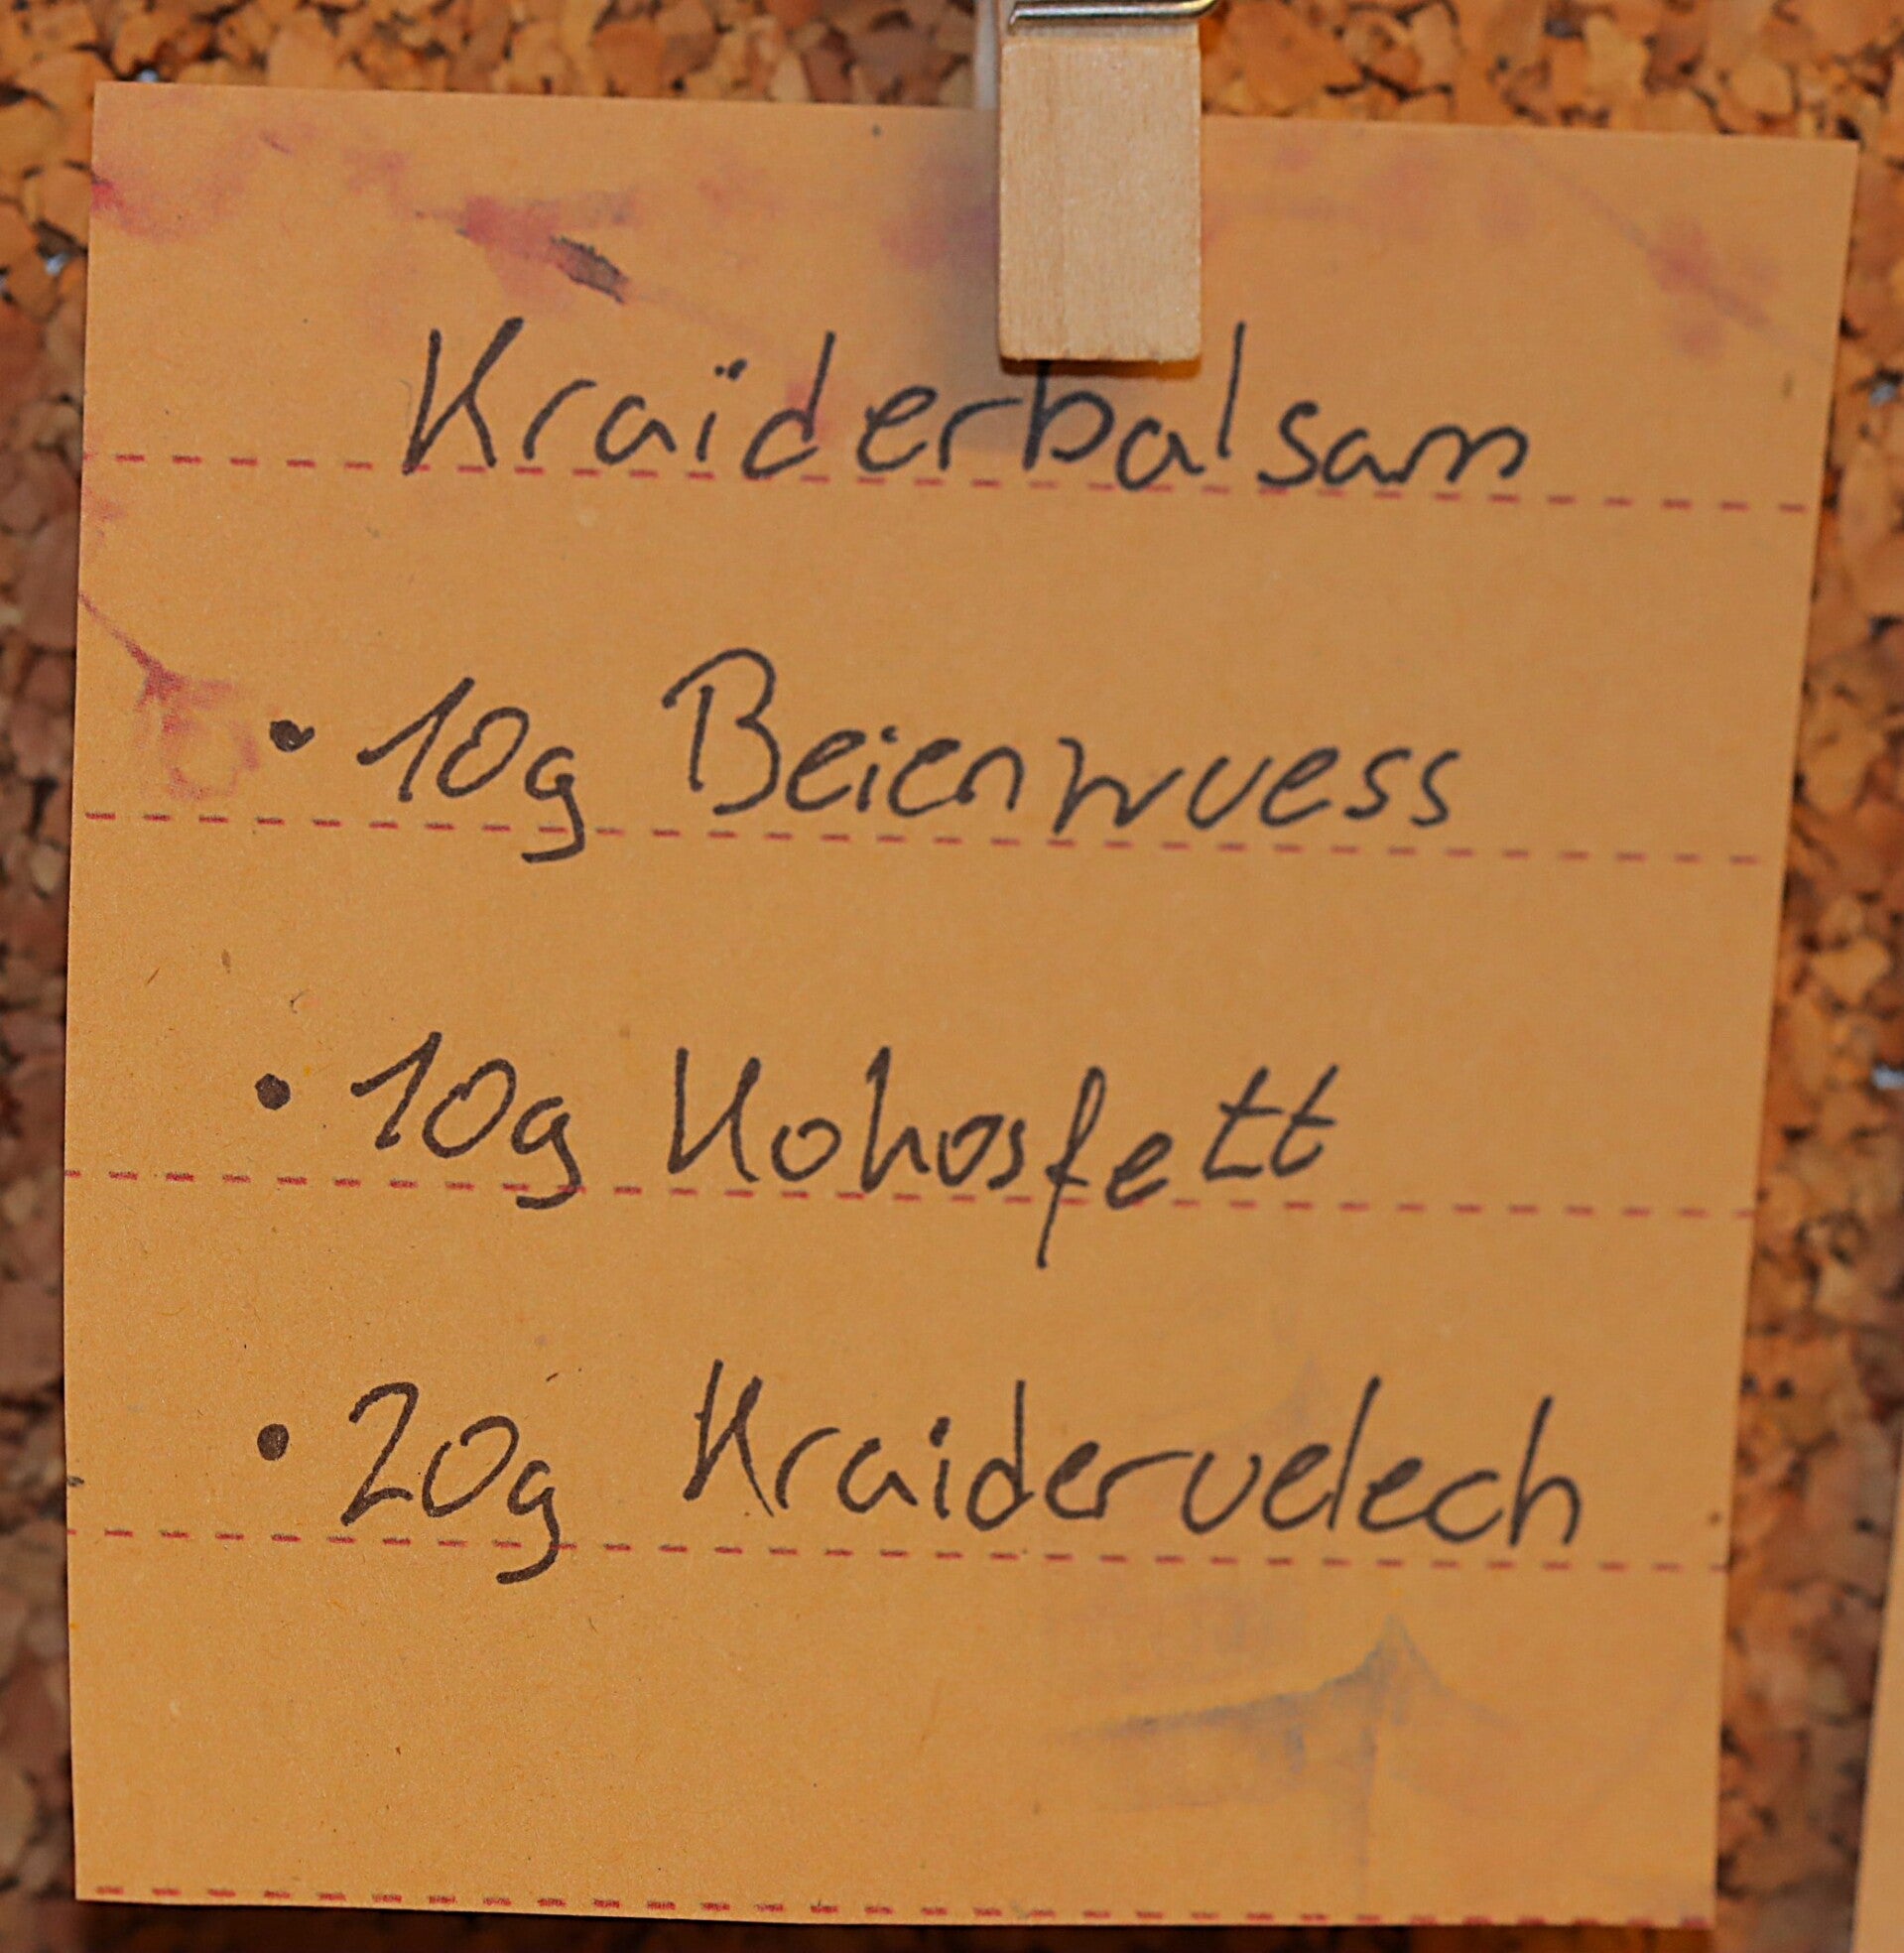 Kraïderbalsam
• 10g Beienwuess
• 10g Kokosfett
• 20g Kraideruelech